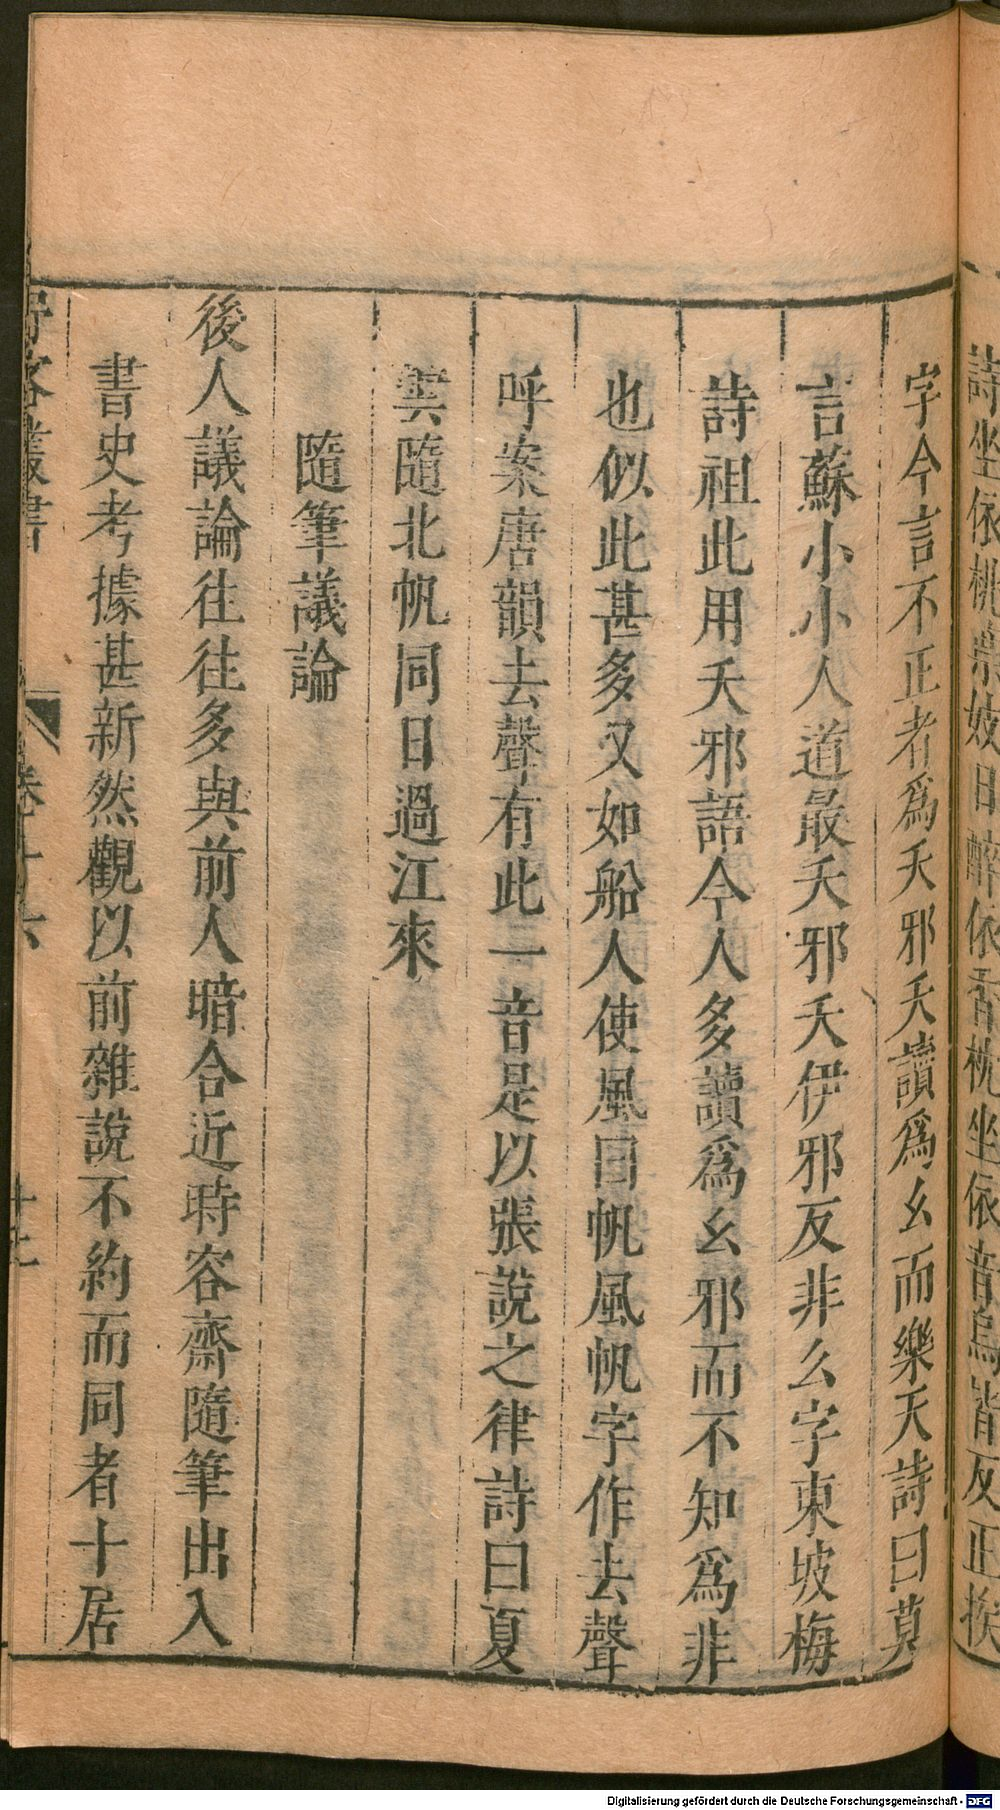 詩坐依桃　妓日醉依香枕坐依音烏皆反正挨
字今言不正者爲夭邪夭讀爲幺而樂天詩曰莫
言蘇小小人道最夭邪夭伊邪反非么字東坡梅
詩祖此用夭邪語今人多讀爲幺邪而不知爲非
也似此甚多又如船人使風曰帆風帆字作去聲
呼案唐韻去聲有此一音是以張說之律詩曰夏
雲隨北帆同日過江來
隨筆議論
後人議論往往多與前人暗合近時容齋隨筆出入
書史考據甚新然觀以前雜說不約而同者十居
野客叢書
卷十六
Digitalisierung gefördert durch die Deutsche Forschungsgemeinschaft - DFG